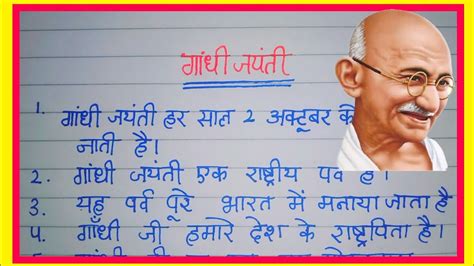 गांधी जयंती
1. गांधी जयंती हर साल 2 अक्टूबर को
जाती है।
2. गांधी जयंती एक राष्ट्रीय पर्व है।
3 यह पर्व पूरे भारत में मनाया जाता है
4. गाँधी जी हमारे देश के राष्ट्रपिता है।